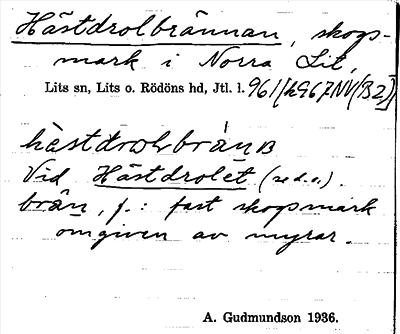 Hästdrolbrännan, skogs-
mark i Norra Lit,
Lits sn, Lits o. Rödöns hd, Jtl. l. 961/[h967NV(B2)]
hästdrωlbränв
Vid Hästdrolet (se d.o.).
brän, f.: fast skogsmark
omgiven av myrar.
A. Gudmundson 1936.